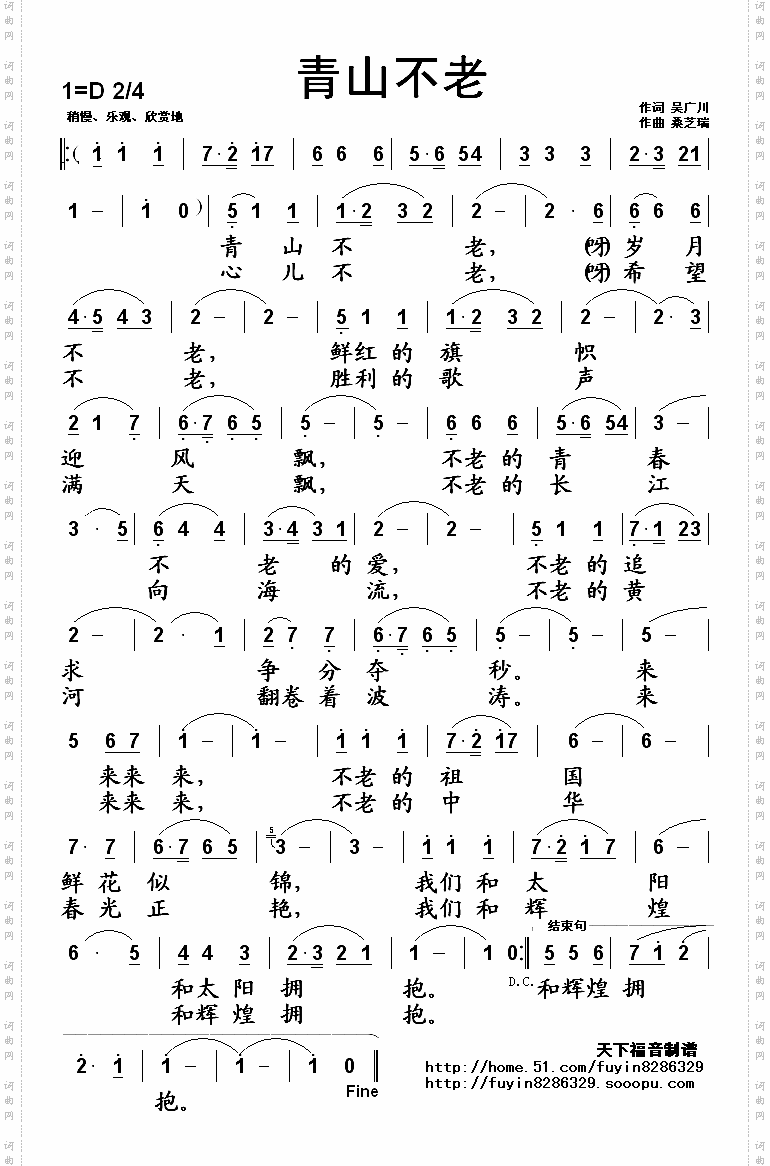 青山不老
1=D 2/4
稍慢、乐观、欣赏地
作词 吴广川
作曲 桑芝瑞
(1 1 1 | 7·2 17 | 6 6 6 | 5·6 54 | 3 3 3 | 2·3 21 |
1 – | 1 0) | 5 1 1 | 1·2 32 | 2 – | 2 · 6 | 6 6 6 |
青山不 老, (呀)岁月
心儿不 老, (呀)希望
4·5 4 3 | 2 – | 2 – | 5 1 1 | 1·2 32 | 2 – | 2 · 3 |
不 老, 鲜红的旗 帜
不 老, 胜利的歌 声
2 1 7 | 6·7 6 5 | 5 – | 5 – | 6 6 6 | 5·6 54 | 3 – |
迎 风 飘, 不老的青 春
满 天 飘, 不老的长 江
3 · 5 | 6 4 4 | 3·4 3 1 | 2 – | 2 – | 5 1 1 | 7·1 23 |
不 老 的爱, 不老的追
向 海 流, 不老的黄
2 – | 2 · 1 | 2 7 7 | 6·7 6 5 | 5 – | 5 – | 5 – |
求 争 分夺 秒。 来
河 翻卷着波 涛。 来
5 6 7 | 1 – | 1 – | 1 1 1 | 7·2 17 | 6 – | 6 – |
来来 来, 不老的祖 国
来来 来, 不老的中 华
7 · 7 | 6·7 6 5 | 5 3 – | 3 – | 1 1 1 | 7·2 1 7 | 6 – |
鲜花似 锦, 我们和太 阳
春光正 艳, 我们和辉 煌
结束句
6 · 5 | 4 4 3 | 2·3 2 1 | 1 – | 1 0 :| 5 5 6 | 7 1 2 |
D.C.
和太阳拥 抱。 和辉煌拥
和辉煌拥 抱。
2 · 1 | 1 – | 1 – | 1 0 ‖
Fine
抱。
天下福音制谱
http://home.51.com/fuyin8286329
http://fuyin8286329.sooopu.com
词曲网